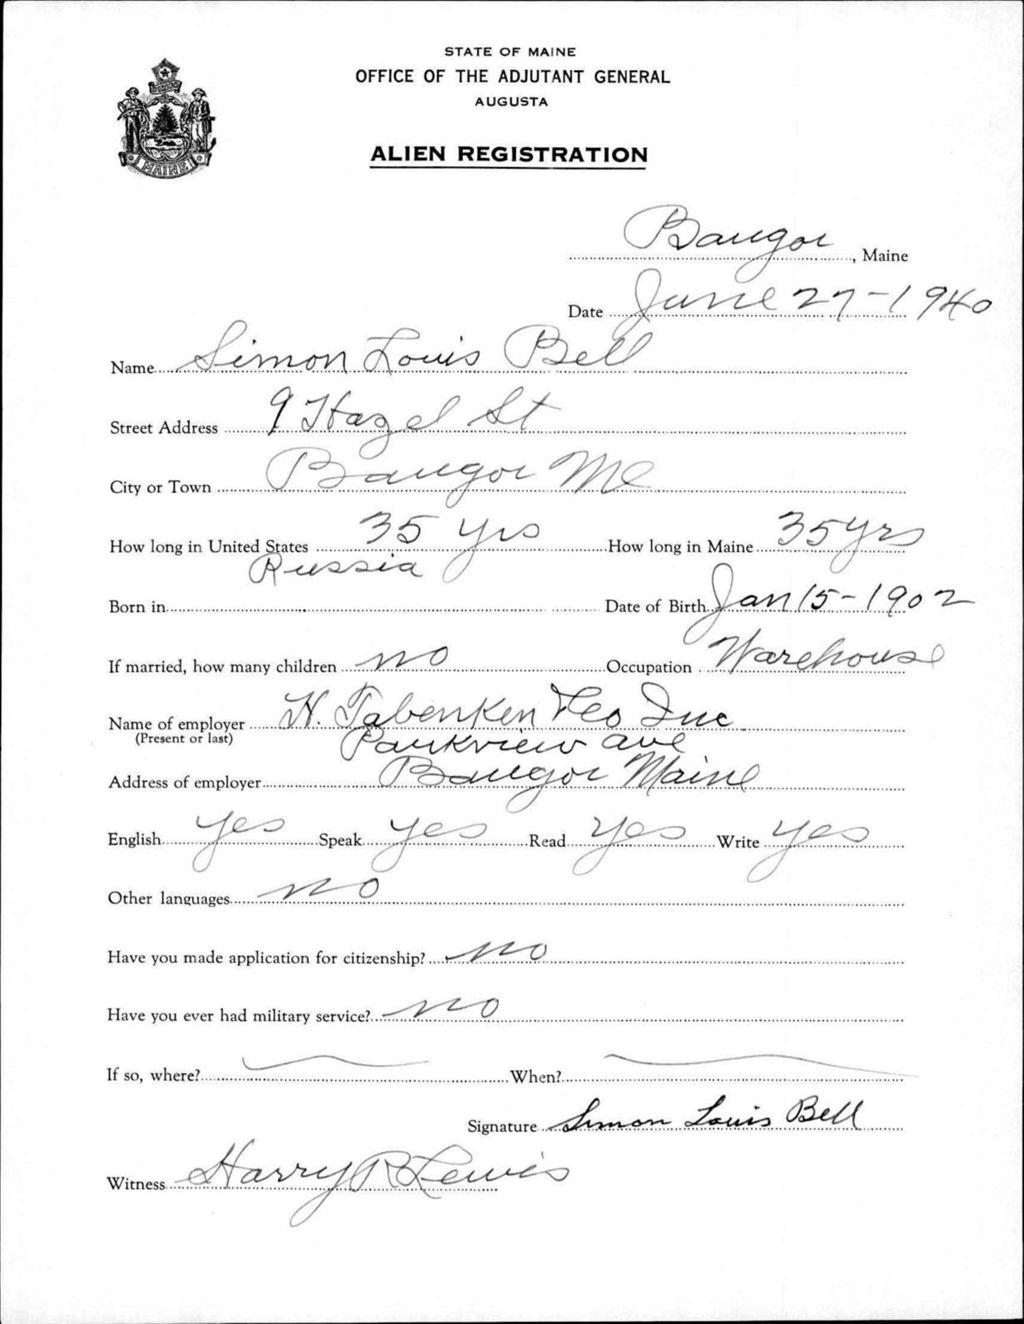 STATE OF MAINE
OFFICE OF THE ADJUTANT GENERAL
AUGUSTA
ALIEN REGISTRATION
MAINE
Bangor, Maine
Date June 27-1940
Name Simon Louis Bell
Street Address 9 Hazel St
City or Town Bangor Me
How long in United States 35 yrs How long in Maine 35 yrs
Russia
Born in Date of Birth Jan 15-1902
If married, how many children no Occupation Warehouse
Name of employer H. Tabenken & Co Inc
(Present or last) Parkview ave
Address of employer Bangor Maine
English yes Speak yes Read yes Write yes
Other languages no
Have you made application for citizenship? no
Have you ever had military service? no
If so, where? When?
Signature Simon Louis Bell
Witness Harry R Lewis